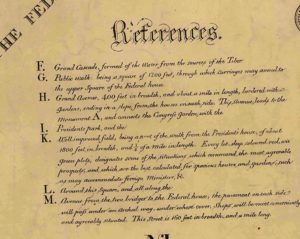 THE FED
References.
F. Grand Cascade, formed of the Water from the sources of the Tiber
G. Public walk, being a square of 1200 feet, through which carriages may ascend to
the upper Square of the Federal house.
H. Grand Avenue, 400 feet in breadth, and about a mile in length, bordered with
gardens, ending in a slope from the houses on each side. This Avenue leads to the
Monument A, and connects the Congress Garden with the
I. Presidents park, and the
K. Well improved field, being a part of the walk from the Presidents house, of about
1800 feet in breadth, and ¾ of a mile in length. Every lot, deep colored red, with
green plots, designates some of the situations which command the most agreeable
prospects, and which are the best calculated for spacious houses and gardens, such
as may accommodate foreign Ministers, &c.
L. Around this Square, and all along the
M. Avenue from the two bridges to the Federal house, the pavement on each side
will pass under an Arched way, under whose cover, Shops will be most conveniently
and agreeably situated. This street is 160 feet in breadth, and a mile long.